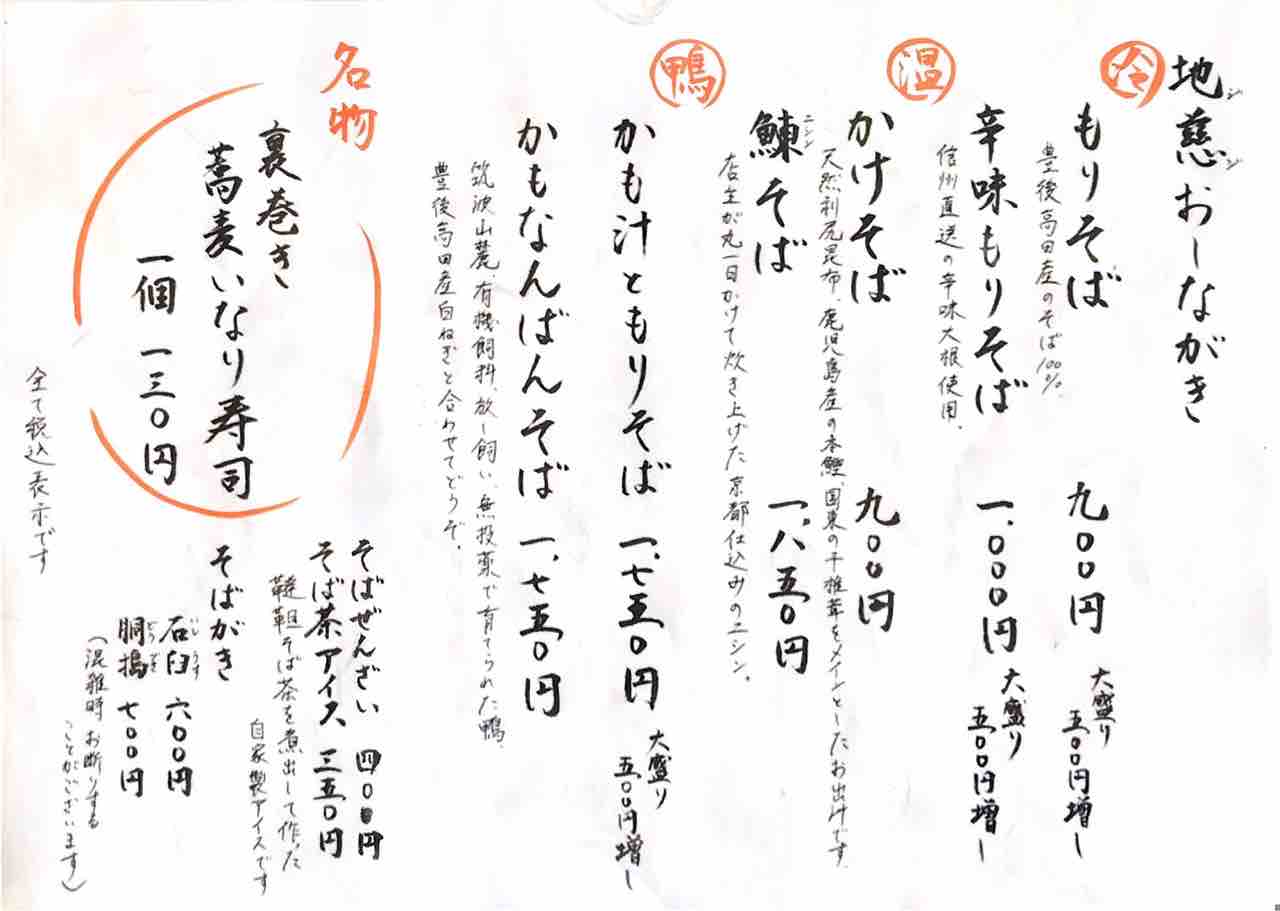 地慈おしながき
ジジ
冷
もりそば 九〇〇円 大盛り 五〇〇円増し
豊後高田産のそば100%.
辛味もりそば 一.〇〇〇円 大盛り 五〇〇円増し
信州直送の辛味大根使用.
温
かけそば 九〇〇円
天然利尻昆布、鹿児島産の本鰹、国東の干椎茸をメインとしたお出汁です.
鰊そば 一.八五〇円
ニシン
店主が丸一日かけて炊き上げた京都仕込みのニシン.
鴨
かも汁ともりそば 一.七五〇円 大盛り 五〇〇円増し
かもなんばんそば 一.七五〇円
筑波山麓、有機飼料、放し飼い、無投薬で育てられた鴨.
豊後高田産白ねぎと合わせてどうぞ.
名物
裏巻き
蕎麦いなり寿司
一個 一三〇円
そばぜんざい 四〇〇円
そば茶アイス 三五〇円
韃靼そば茶を煮出して作った
自家製アイスです
そばがき
石臼 六〇〇円
いしうす
胴搗 七〇〇円
どうづき
(混雑時お断りする
ことがございます)
全て税込表示です